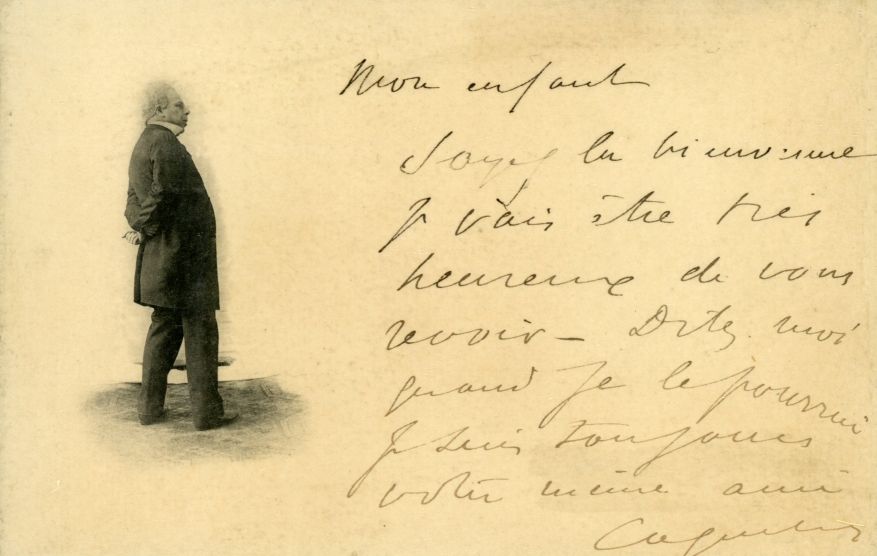 Mon enfant
Soyez la bienvenue
Je vais être très
heureux de vous
revoir — Dites moi
quand je le pourrai
Je suis toujours
votre même ami
Coquelin